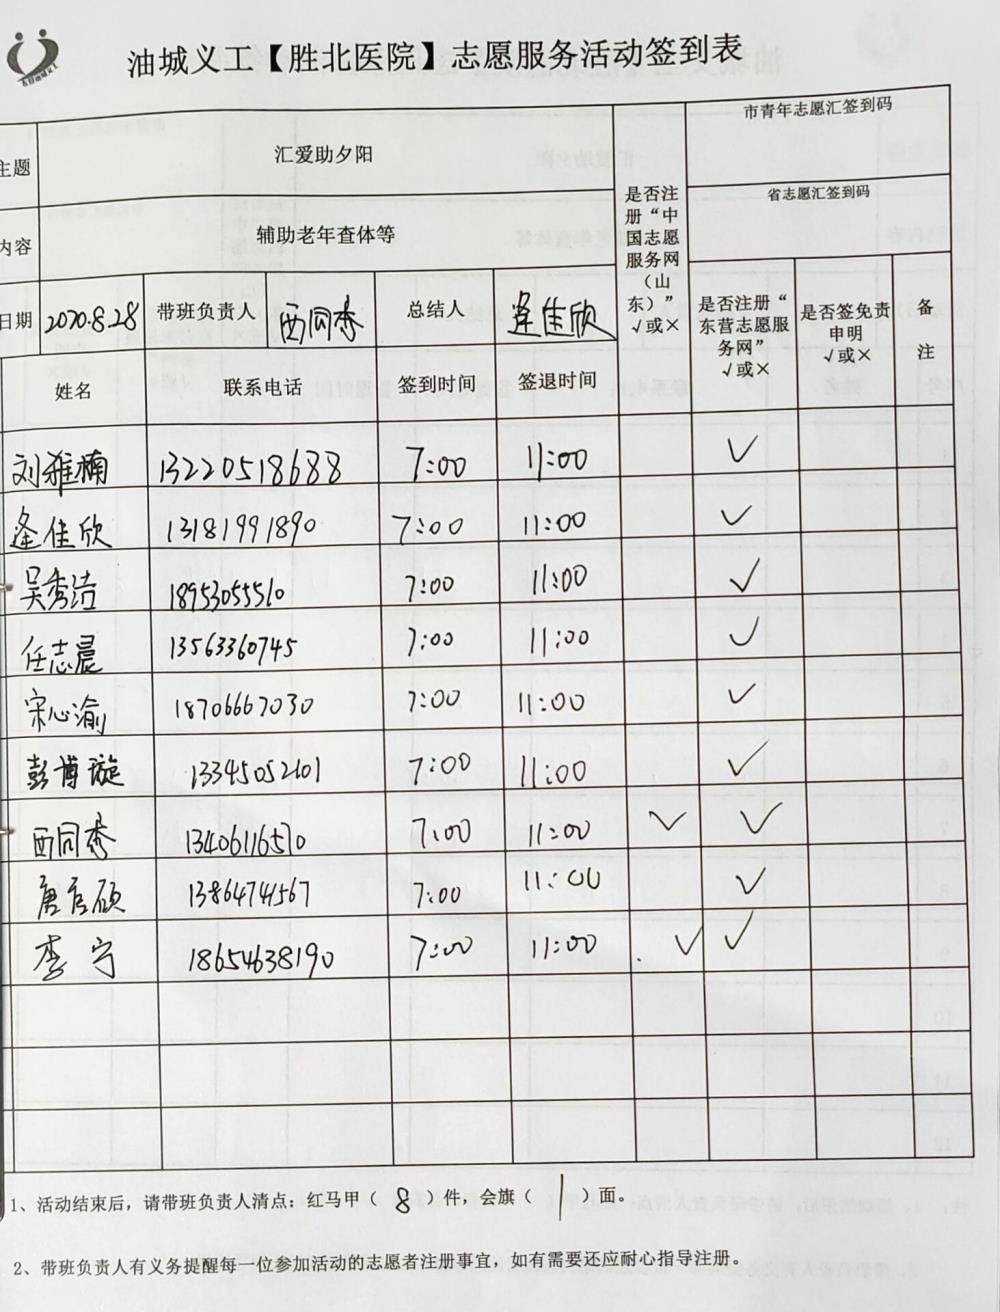 油城义工【胜北医院】志愿服务活动签到表
主题 汇爱助夕阳
是否注册“中国志愿服务网（山东）” √或×
市青年志愿汇签到码
省志愿汇签到码
内容 辅助老年查体等
日期 2020.8.28 带班负责人 西同秀 总结人 逄佳欣
是否注册“东营志愿服务网” √或×
是否签免责申明 √或×
备注
姓名 联系电话 签到时间 签退时间
刘雅楠 13220518688 7:00 11:00 √
逄佳欣 13181991890 7:00 11:00 √
吴秀洁 18953055510 7:00 11:00 √
任志晨 13563360745 7:00 11:00 √
宋心渝 18706667030 7:00 11:00 √
彭博璇 13345052101 7:00 11:00 √
西同秀 13406116510 7:00 11:00 √ √
唐 硕 13864741567 7:00 11:00 √
李宁 18654638190 7:00 11:00 √ √
1、活动结束后，请带班负责人清点：红马甲（ 8 ）件，会旗（ 1 ）面。
2、带班负责人有义务提醒每一位参加活动的志愿者注册事宜，如有需要还应耐心指导注册。